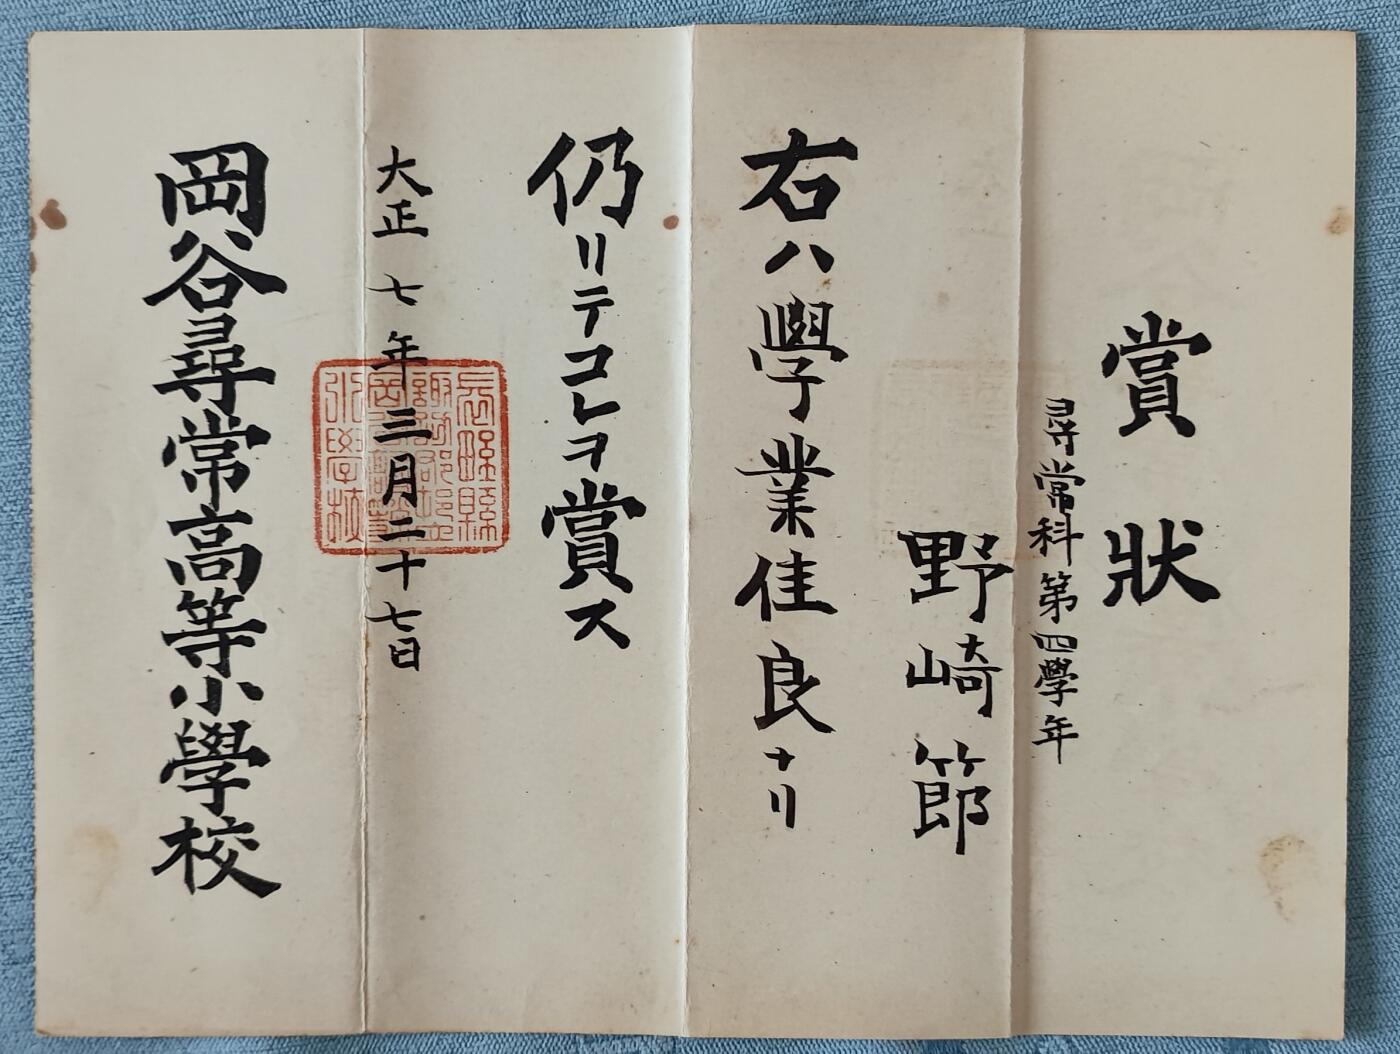 賞狀
尋常科第四學年
野崎節
右ハ學業佳良ナリ
仍リテコレヲ賞ス
大正七年三月二十七日
岡谷尋常高等小學校